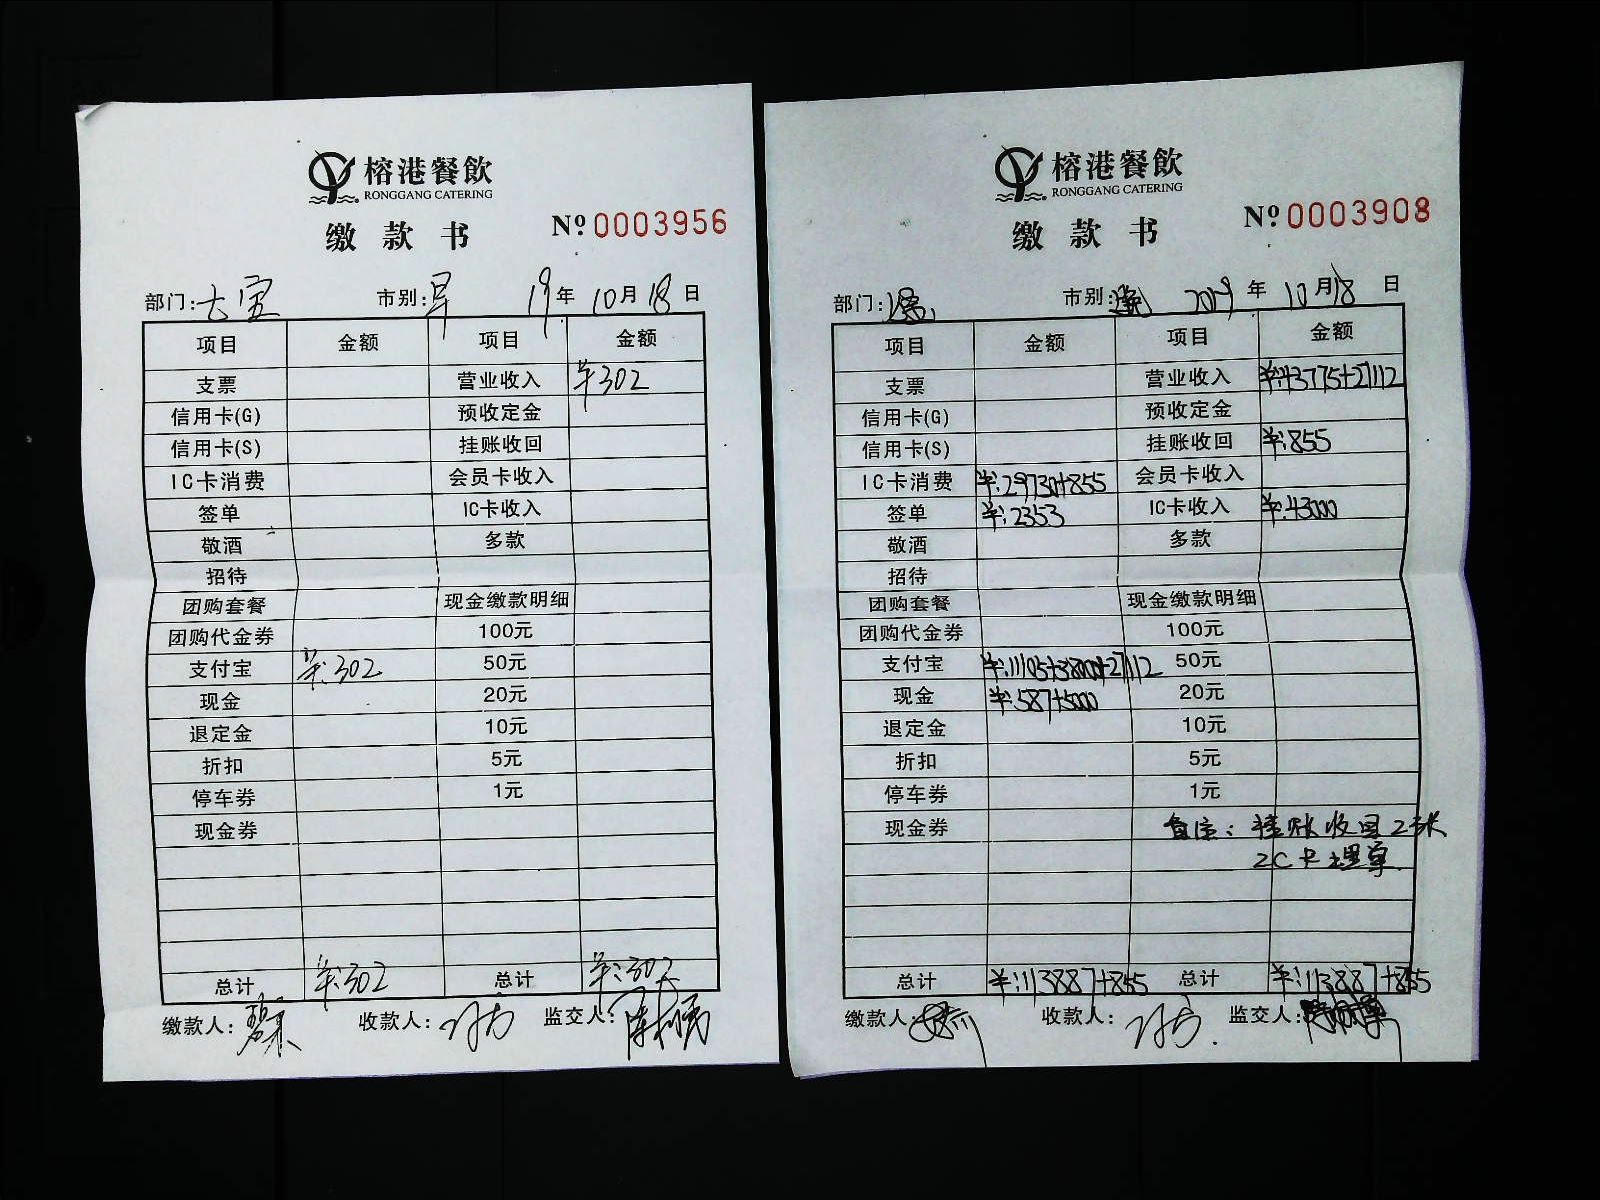 榕港餐飲
RONGGANG CATERING
缴款书
Nº 0003956
部门: 市别:早 19年10月18日
项目 金额 项目 金额
支票 营业收入 ¥302
信用卡(G) 预收定金
信用卡(S) 挂账收回
IC卡消费 会员卡收入
签单 IC卡收入
敬酒 多款
招待
团购套餐 现金缴款明细
团购代金券 100元
支付宝 ¥:302 50元
现金 20元
退定金 10元
折扣 5元
停车券 1元
现金券
总计 ¥:302 总计 ¥:302
缴款人: 收款人: 监交人:
榕港餐飲
RONGGANG CATERING
缴款书
Nº 0003908
部门: 市别: 2019年10月18日
项目 金额 项目 金额
支票 营业收入 ¥:43775+27112
信用卡(G) 预收定金
信用卡(S) 挂账收回 ¥:855
IC卡消费 ¥:29730+855 会员卡收入
签单 ¥:2353 IC卡收入 ¥:43000
敬酒 多款
招待
团购套餐 现金缴款明细
团购代金券 100元
支付宝 ¥:11105+38000+27112 50元
现金 ¥:587+5000 20元
退定金 10元
折扣 5元
停车券 1元
现金券 备注:挂账收回2张
IC卡埋单.
总计 ¥:113887+855 总计 ¥:113887+855
缴款人: 收款人: 监交人: